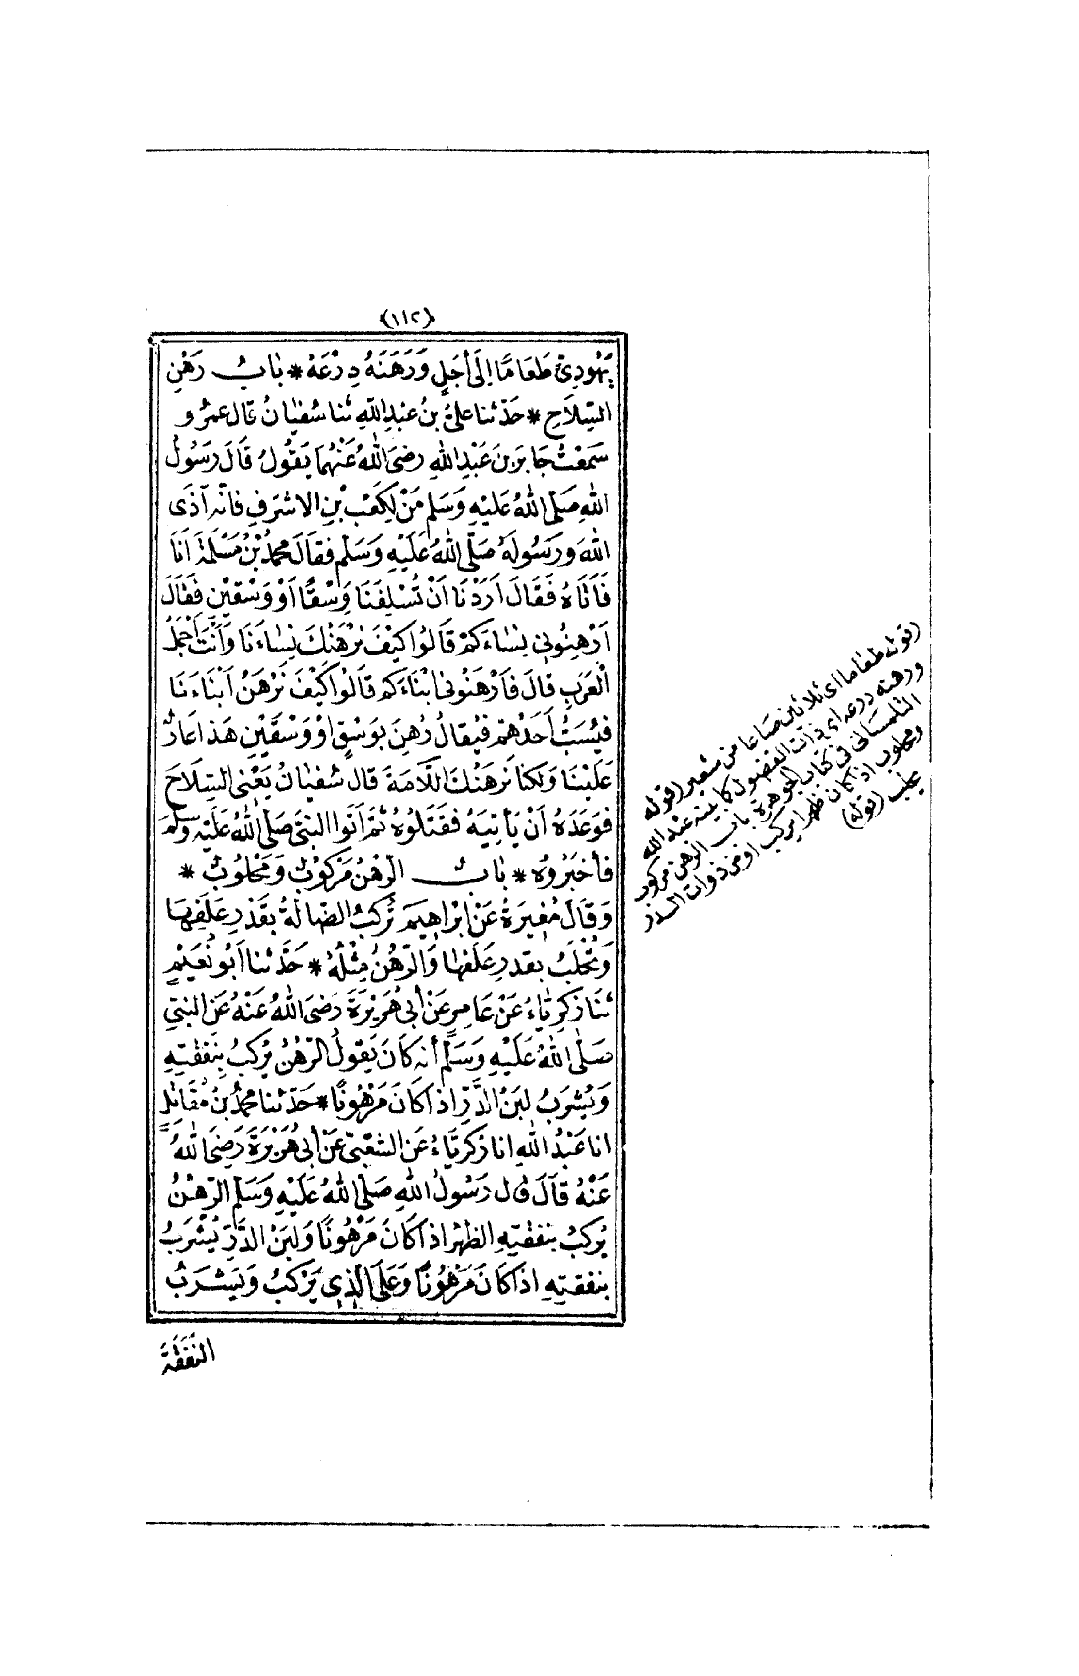 (١١٢)
يَهُودِىٍّ طَعَامًا اِلَى أَجَلٍ وَرَهَنَهُ دِرْعَهُ * بَابُ رَهْنِ
السِّلَاحِ * حَدَّثَنَا عَلِىُّ بْنُ عَبْدِ اللّٰهِ ثنا سُفْيَانُ قَالَ عَمْرٌو
سَمِعْتُ جَابِرَ بْنَ عَبْدِ اللّٰهِ رَضِىَ اللّٰهُ عَنْهُمَا يَقُولُ قَالَ رَسُولُ
اللّٰهِ صَلَّى اللّٰهُ عَلَيْهِ وَسَلَّمَ مَنْ لِكَعْبِ بْنِ الاشْرَفِ فَاِنَّهُ آذَى
اللّٰهَ وَرَسُولَهُ صَلَّى اللّٰهُ عَلَيْهِ وَسَلَّمَ فَقَالَ مُحَمَّدُ بْنُ مَسْلَمَةَ اَنَا
فَاَتَاهُ فَقَالَ اَرَدْنَا اَنْ تُسْلِفَنَا وَسْقًا اَوْ وَسْقَيْنِ فَقَالَ
اَرْهِنُونِى نِسَاءَكُمْ قَالُوا كَيْفَ نَرْهَنُكَ نِسَاءَنَا وَأَنْتَ اَجْمَلُ
الْعَرَبِ قَالَ فَارْهَنُونِى اَبْنَاءَكُمْ قَالُوا كَيْفَ نَرْهَنُ اَبْنَاءَنَا
فَيُسَبُّ أَحَدُهُمْ فَيُقَالُ رُهِنَ بِوَسْقٍ اَوْ وَسْقَيْنِ هَذَا عَارٌ
عَلَيْنَا وَلَكِنَّا نَرْهَنُكَ اللَّأمَةَ قَالَ سُفْيَانُ يَعْنِى السِّلَاحَ
فَوَعَدَهُ اَنْ يَأتِيَهُ فَقَتَلُوهُ ثُمَّ اَتَوُا النَّبِىَّ صَلَّى اللّٰهُ عَلَيْهِ وَسَلَّمَ
فَأَخْبَرُوهُ * بَابُ الرَّهْنُ مَرْكُوبٌ وَمَحْلُوبٌ *
وَقَالَ مُغِيرَةُ عَنْ اِبْرَاهِيمَ تُرْكَبُ الضَّالَّةُ بِقَدْرِ عَلَفِهَا
وَتُحْلَبُ بِقَدرِ عَلَفِهَا وَالرَّهْنُ مِثْلُهُ * حَدَّثَنَا اَبُو نُعَيْمٍ
ثَنَا زَكَرِيَّاءُ عَنْ عَامِرٍ عَنْ أَبِى هُرَيْرَةَ رَضِىَ اللّٰهُ عَنْهُ عَنِ النَّبِىِّ
صَلَّى اللّٰهُ عَلَيْهِ وَسَلَّمَ أَنَّهُ كَانَ يَقُولُ الرَّهْنُ يُرْكَبُ بِنَفَقَتِهِ
وَيُشْرَبُ لَبَنُ الدَّرِّ اِذَا كَانَ مَرْهُونًا * حَدَّثَنَا مُحَمَّدُ بْنُ مُقَاتِلٍ
انا عَبْدُ اللّٰهِ انا زَكَرِيَّاءُ عَنِ الشَّعْبِىِّ عَنْ أَبِى هُرَيْرَةَ رَضِىَ اللّٰهُ
عَنْهُ قَالَ قَالَ رَسُولُ اللّٰهِ صَلَّى اللّٰهُ عَلَيْهِ وَسَلَّمَ الرَّهْنُ
يُرْكَبُ بِنَفَقَتِهِ الظَّهْرُ اِذَا كَانَ مَرْهُونًا وَلَبَنُ الدَّرِّ يُشْرَبُ
بِنَفَقَتِهِ اِذَا كَانَ مَرْهُونًا وَعَلَى الَّذِى يَرْكَبُ وَيَشْرَبُ
النَّفَقَةُ
(قوله طعاما) أى ثلاثين صاعا من شعير (قوله
ورهنه درعه) أى ذات الفضول كما بينه عبد الله
التلمسانى فى كتاب الجوهرة باب الرهن مركوب
ومحلوب اذا كان ظهرا يركب أو من ذوات الدر
يحلب (قوله)